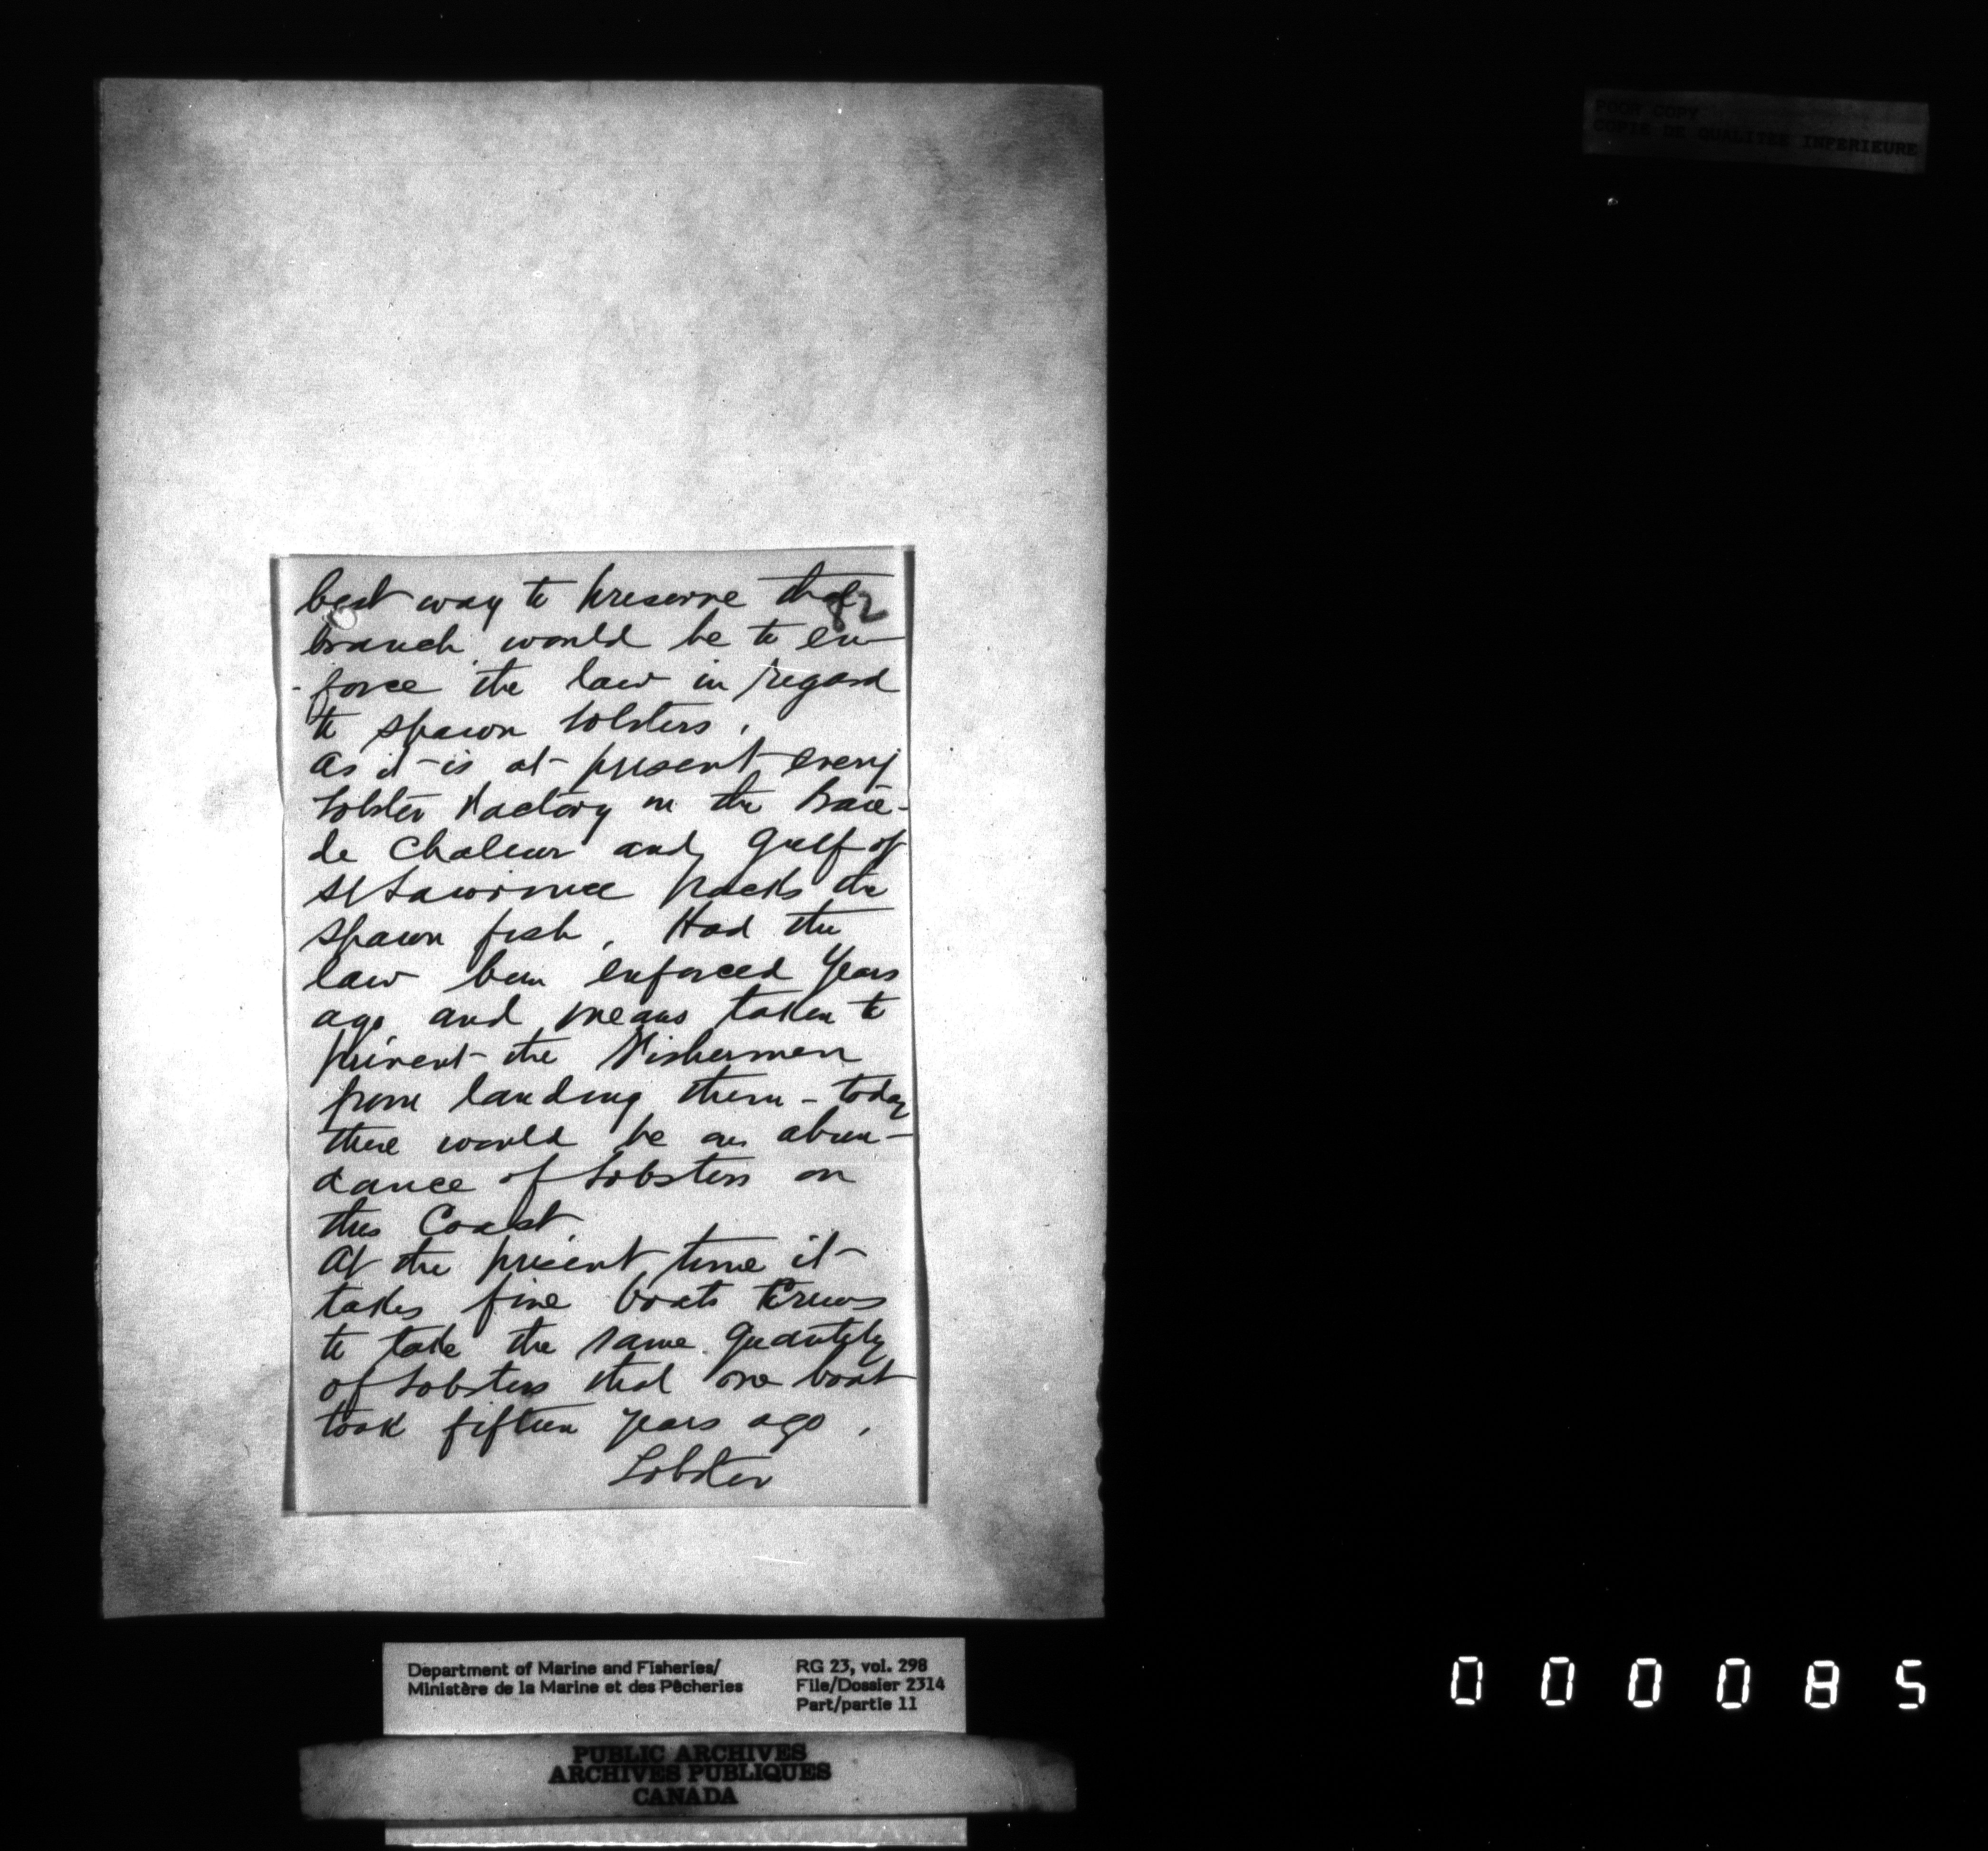 POOR COPY
COPIE DE QUALITEE INFERIEURE
82
best way to preserve that
branch would be to en-
-force the law in regard
to spawn lobsters.
As it is at present every
Lobster Factory on the Baie-
de Chaleur and Gulf of
St Lawrence packs the
spawn fish. Had the
law been enforced years
ago and means taken to
prevent the Fishermen
from landing them - today
there would be an abun-
dance of Lobsters on
this Coast.
At the present time it
takes five boats Crews
to take the same quantity
of Lobsters that one boat
took fifteen years ago.
Lobster
Department of Marine and Fisheries/
Ministère de la Marine et des Pêcheries
RG 23, vol. 298
File/Dossier 2314
Part/partie 11
PUBLIC ARCHIVES
ARCHIVES PUBLIQUES
CANADA
000085